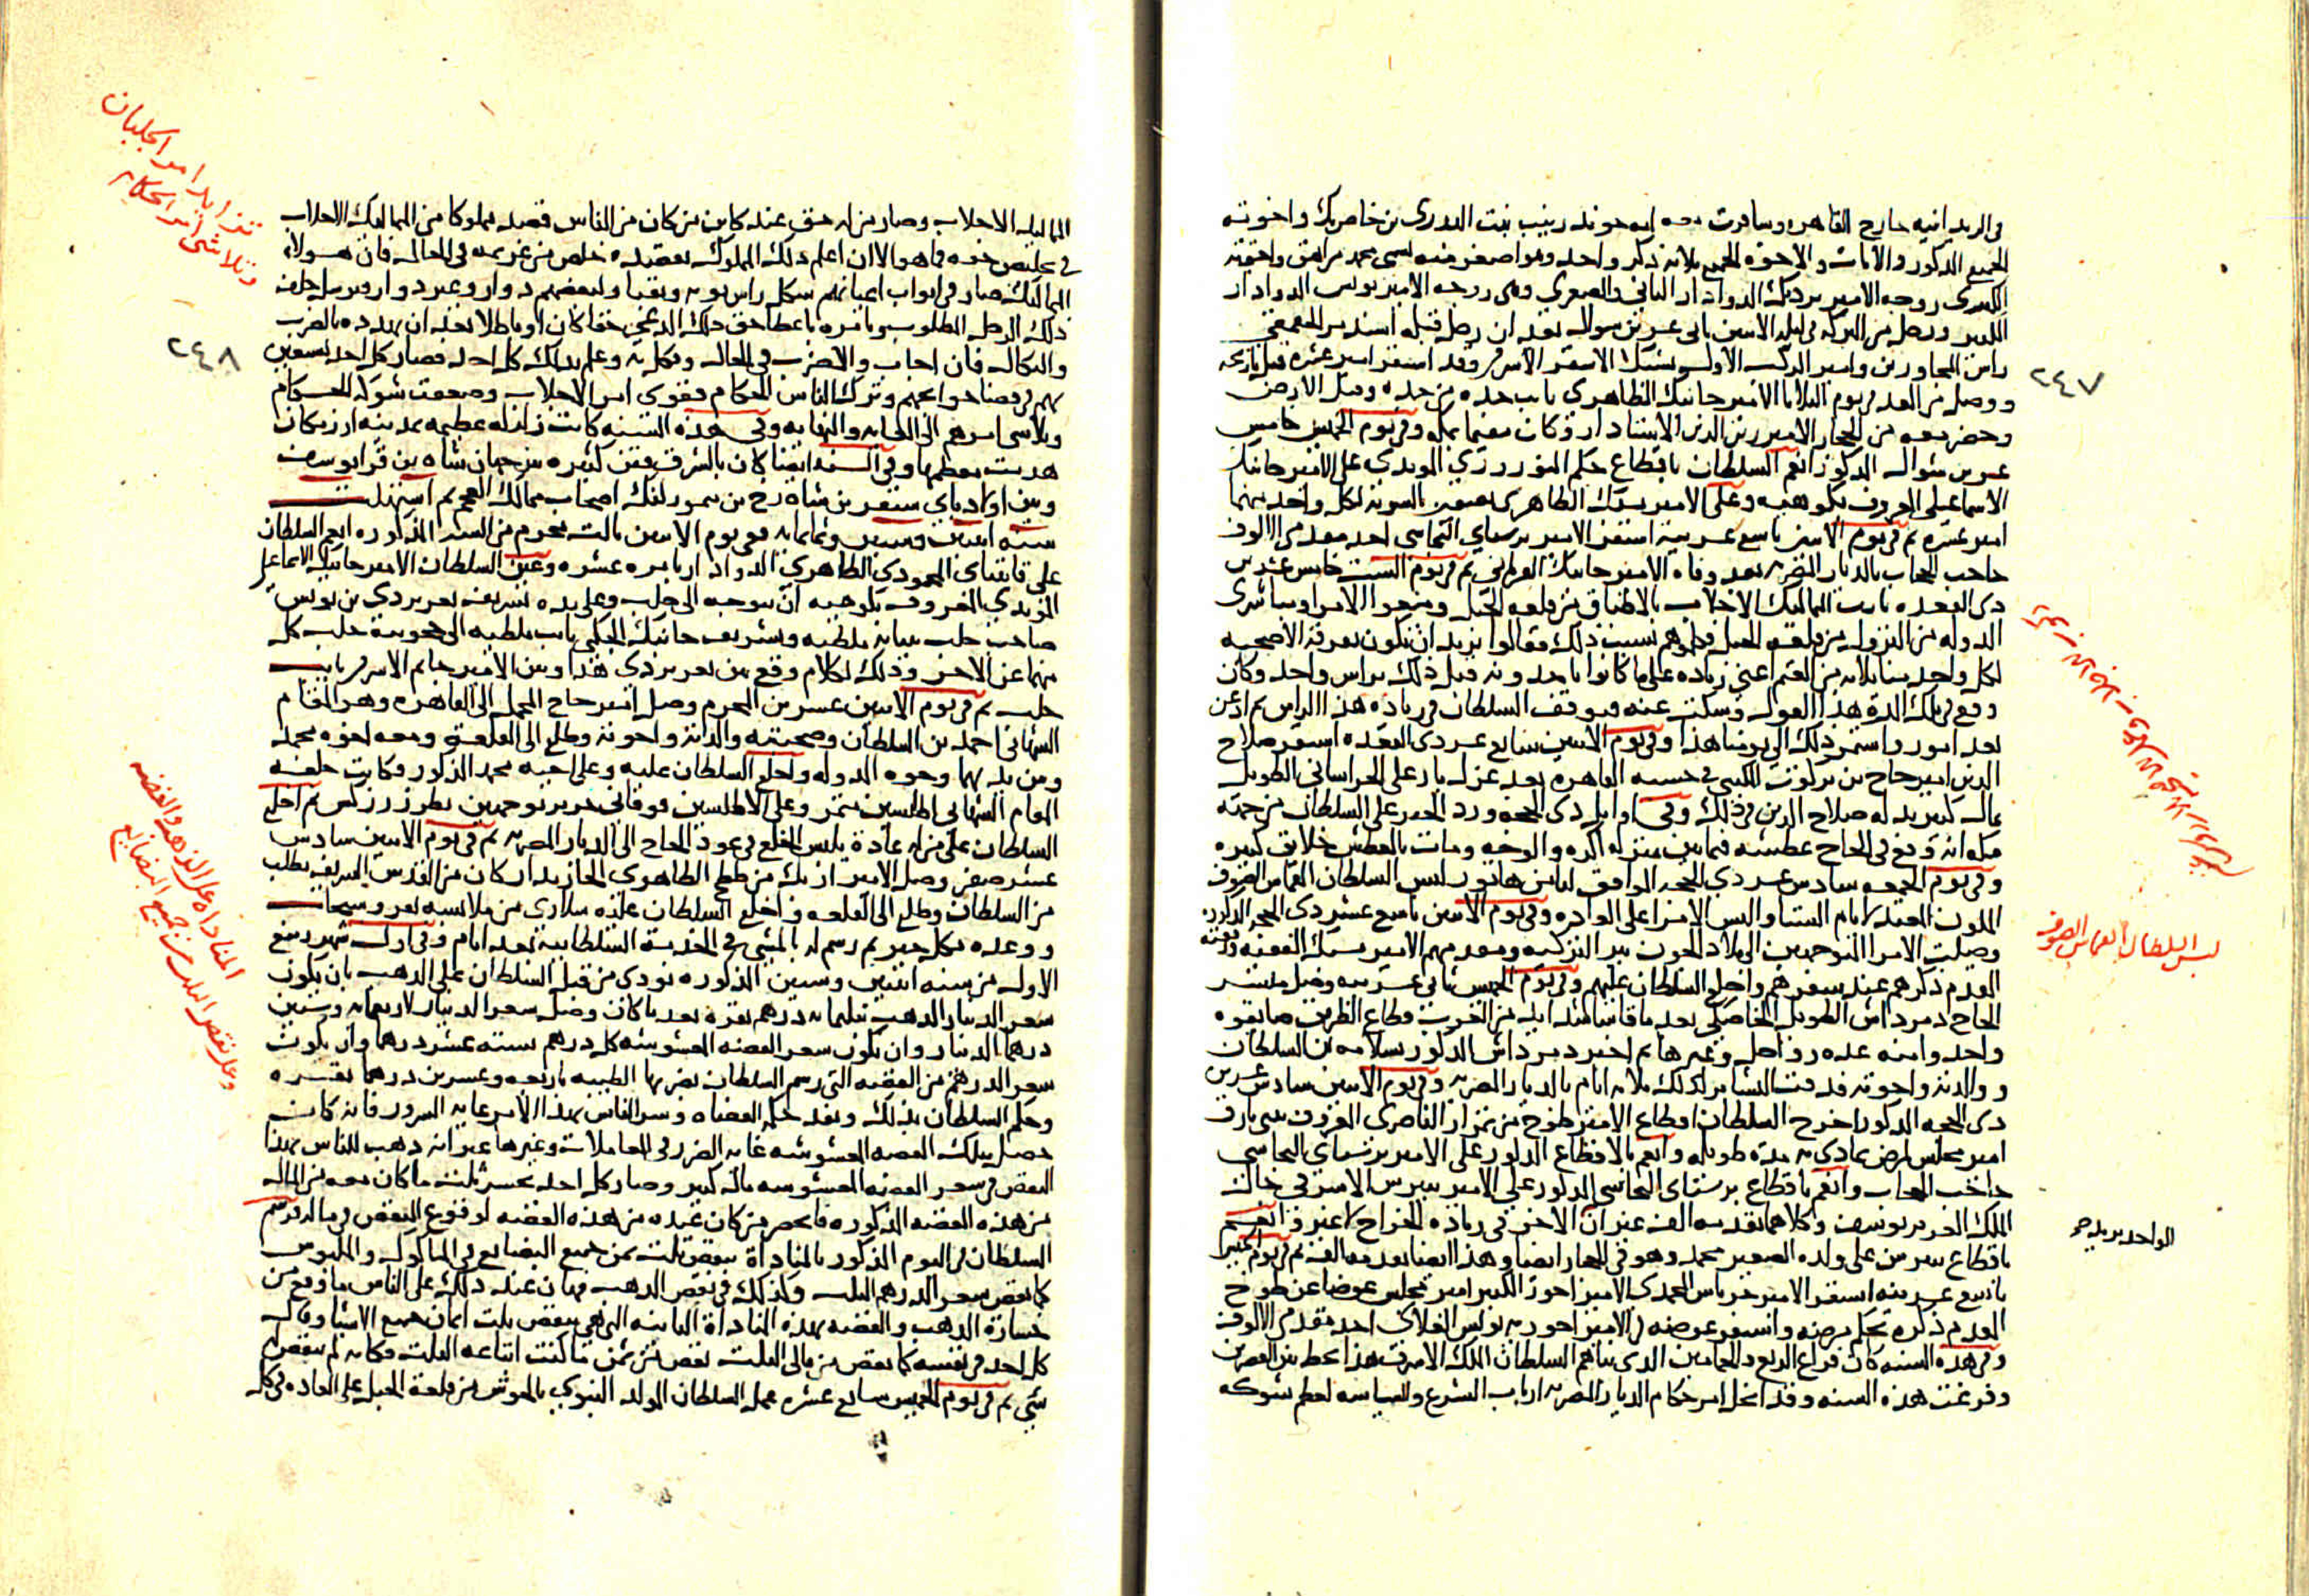 في الريدانيه خارج القاهره وسافرت معه امه خوند زينب بنت البدرى بن خاص بك واخوته
الجميع الذكور والاناث والاخوة الجميع ثلاثه ذكر واحد وهو اصغر منه يسمى محمد مراهق واخته
الكبرى زوجه الامير بردبك الدوادار الثاني والصغرى وهى زوجه الامير يونس الدوادار
الكبير ورحل من البركه فى ليله الاثنين ثانى عشرين شوال بعد ان رحل قبله اسندمر الجقمقي
راس المجاورين وامير الركب الاول يشبك الاشقر الاشرفى وقد استقر امير عشره قبل تاريخه
٢٤٧
ووصل من الغد فى يوم الثلاثا الامير جانبك الظاهرى نايب جده من جده وقبل الارض
وحضر معه من الحجاز الامير زين الدين الاستادار وكان مقيما بمكه وفى يوم الخميس خامس
عشرين شوال المذكور انعم السلطان باقطاع جكم النوروزي المويدي على الامير جانبك
الاسماعيلى المعروف بكوهيه وعلى الامير يشبك الظاهرى نصفين بالسويه لكل واحد منهما
امير عشره ثم فى يوم الاثنين تاسع عشرينه استقر الامير برسباي البجاسى احد مقدمى الالوف
حاجب الحجاب بالديار المصريه بعد وفاه الامير جانبك القرمانى ثم فى يوم السبت خامس عشرين
ذى القعده ثارت المماليك الاجلاب بالاطباق من قلعه الجبل ومنعوا الامرا ومباشرى
الدوله من النزول من قلعه الجبل فى سبب ذلك فقالوا نريد ان تكون تفرقة الاضحيه
لكل واحد منا ثلاثه من الغنم اعني زياده على ما كانوا ياخدونه قبل ذلك براس واحد وكان
وقع فى تلك المدة هذا القول وسكت عنه فتوقف السلطان فى زيادة هذا الراس ثم اذعن
بعد امور واستمر ذلك الى يومنا هذا وفى يوم الاثنين سابع عشر ذى القعده استقر صلاح
الدين امير حاج بن بركوت المكينى فى حسبه القاهره بعد عزل يار على الخراسانى الطويل
بمال كثير بذله صلاح الدين فى ذلك وفى اوايل ذى الحجه ورد الخبر على السلطان من جهة
مكه انه وقع فى الحاج عطشه فيما بين منزله اكره والوجه ومات بالعطش خلايق كثيره
وفى يوم الجمعه سادس عشر ذى الحجه الموافق لثامن هاتور لبس السلطان القماش الصوف
الملون المعتد لايام الشتا والبس الامرا على العاده وفى يوم الاثنين تاسع عشر ذى الحجه المذكور
وصلت الامرا المتوجهين الى بلاد الجون ببر التركيه ومقدمهم الامير يشبك الفقيه ورفقته
المقدم ذكرهم عند سفرهم واخلع السلطان عليهم وفى يوم الخميس ثانى عشرينه وصل مبشر
الحاج دمرداش الطويل الخاصكى بعد ما قاسا شدايد من العرب وقطاع الطريق
واحد وامنه عده رواحل وغيرها ثم اخبر دمرداش المذكور بسلامه بن السلطان
ووالدته واخوته فدقت البشاير لذلك ثلاثه ايام بالديار المصريه وفى يوم الاثنين سادس عشرين
ذى الحجه المذكور اخرج السلطان اقطاع الامير طوخ من تمراز الناصرى المعروف بينى بازق
امير مجلس لمرض تمادى به مدة طويله وانعم بالاقطاع المذكور على الامير برسباى البجاسى
حاجب الحجاب وانعم باقطاع برسباى البجاسى المذكور على الامير بيبرس الاشرفى خال
الملك العزيز يوسف وكلاهما تقدمه الف غير ان الاخر فى زياده الخراج لا غير وانعم
باقطاع بيبرس على ولده الصغير محمد وهو فى الحجاز ايضا وهذا ايضا تقدمه الف ثم فى يوم الخميس
تاسع عشرينه استقر الامير جرباش المحمدى الامير اخور الكبير امير مجلس عوضا عن طوخ
المقدم ذكره بحكم مرضه واستقر عوضه فى الامير اخوريه يونس العلائى احد مقدمى الالوف
وفى هذه السنه كان فراغ الربع والحمامين الذى بناهم السلطان الملك الاشرف هذا بخط بين القصرين
وفرغت هذه السنه وقد انحل امر حكام الديار المصريه ارباب الشرع والسياسه لعظم شوكه
لبس السلطان القماش الصوف
تزايد امر الجلبان
وتلاشى امر الحكام
المماليك الاجلاب وصار من له حق عند كاين من كان من الناس قصد مملوكا من المماليك الاجلاب
فى تخليص حقه فما هو الا ان اعلم ذلك المملوك بقصده خلص من غريمه فى الحال فان هولاء
المماليك صار فى ابواب اعيانهم شكل راس نوبه ونقبا ولبعضهم دوادار وعبر دوادار ويرسل خلف
ذلك الرجل المطلوب ويامره باعطا حق ذلك المدعي حقا كان او باطلا بعد ان يهدده بالضرب
٢٤٨
والنكال فان اجاب والا ضرب فى الحال ونكل به وعلم بذلك كل احد فصار كل احد يستعين
بهم فى قضا حوايجهم وترك الناس الحكام فقوى امر الاجلاب وضعفت شوكه الحكام
وتلاشى امرهم الى الغايه والنهايه وفى هذه السنه كانت زلزله عظيمه بمدينه ارزنكان
هدمت معظمها وفى السنه ايضا كان بالشرق فتن كثيره بين جهان شاه بن قرا يوسف
وبين اولاد باي سنقر بن شاه رخ بن تيمور لنك اصحاب ممالك العجم ثم استهلت
سنه اثنين وستين وثمانمايه ففى يوم الاثنين ثالث محرم من السنه المذكوره انعم السلطان
على قايتباى المحمودي الظاهري الدوادار بامره عشره وعين السلطان الامير جانبك الاسماعيلى
المؤيدي المعروف بكوهيه ان يتوجه الى حلب وعلى يده تشريف تغرى بردي بن يونس
حاجب حلب بنيابه ملطيه وتشريف جانبك الجكمى نايب ملطيه الى حجوبيه حلب كل
منهما عن الاخر وذلك لكلام وقع بين تغرى بردى هذا وبين الامير جانم الاشرفى نايب
حلب ثم فى يوم الاثنين عشرين المحرم وصل امير حاج المحمل الى القاهره وهو المقام
الشهابى احمد بن السلطان وصحبته والدته واخوته وطلع الى القلعه ومعه اخوه محمد
ومن بدبهما وجوه الدوله واخلع السلطان عليه وعلى اخيه محمد المذكور وكانت خلعه
المقام الشهابى اطلسين متمر وعلى الاطلسين فوقانى حرير بوجهين بطرز زركش ثم اخلع
السلطان على من له عادة بلبس الخلع فى عود الحاج الى الديار المصريه ثم فى يوم الاثنين سادس
عشر صفر وصل الامير ازبك من ططخ الظاهرى الخازندار كان من القدس الشريف بطلب
من السلطان وطلع الى القلعه واخلع السلطان عليه سلارى من ملابسه بفرو سنجاب
ووعده بكل خير ثم رسم له بالمشى فى الخدمه السلطانيه بعد ايام وفى اول شهر ربيع
الاول من سنه اثنين وستين المذكوره نودى من قبل السلطان على الذهب بان يكون
سعر الدينار الذهب ثلثمايه درهم نقره بعد ما كان وصل سعر الدينار لاربعمايه وستين
درهما الدينار وان يكون سعر الفضه المغشوشه كل درهم سته عشر درهما وان يكون
سعر الدرهم من الفضه التى رسم السلطان بضربها الطيبه باربعه وعشرين درهما نقره
وحكم السلطان بذلك ونفذ حكم القضاه وسر الناس بهذا الامر غايه السرور فانه كان
حصل بتلك الفضه المغشوشه غايه الضرر فى المعاملات وغيرها غير انه ذهب للناس بهذا
النقص فى سعر الفضه المغشوشه مال كبير وصار كل احد يخسر ثلث ما كان معه من المال
من هذه الفضه المذكوره فانحصر من كان عنده من هذه الفضه لوقوع النقص فى ماله فرسم
السلطان فى اليوم المذكور بالمناداة بنقص ثلث ثمن جميع البضايع فى الماكول والملبوس
كما نقص سعر الدرهم الثلث وكذلك فى نقص الذهب فهان عند ذلك على الناس ما وقع من
خسارة الذهب والفضه بهذه المناداة الثانيه التى هى بنقص ثلث اثمان جميع الاشيا وقال
كل احد فى نفسه كما نقص من مالى الثلث نقص من ثمن ما كنت ابتاعه الثلث فكانه لم ينقص لى
شى ثم فى يوم الخميس سابع عشره عمل السلطان المولد النبوى بالحوش من قلعة الجبل على العاده فى كل
المناداه على الذهب والفضه
وعلى نقص الثلث من جميع البضايع